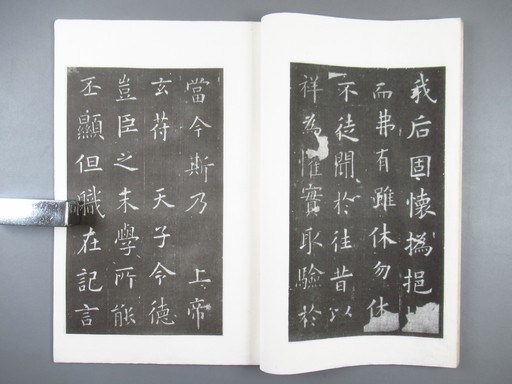 我后固懷撝挹
而弗有雖休勿休
不徒聞於往昔以
祥為懼實取驗於
當今斯乃 上帝
玄符 天子令德
豈臣之末學所能
丕顯但職在記言